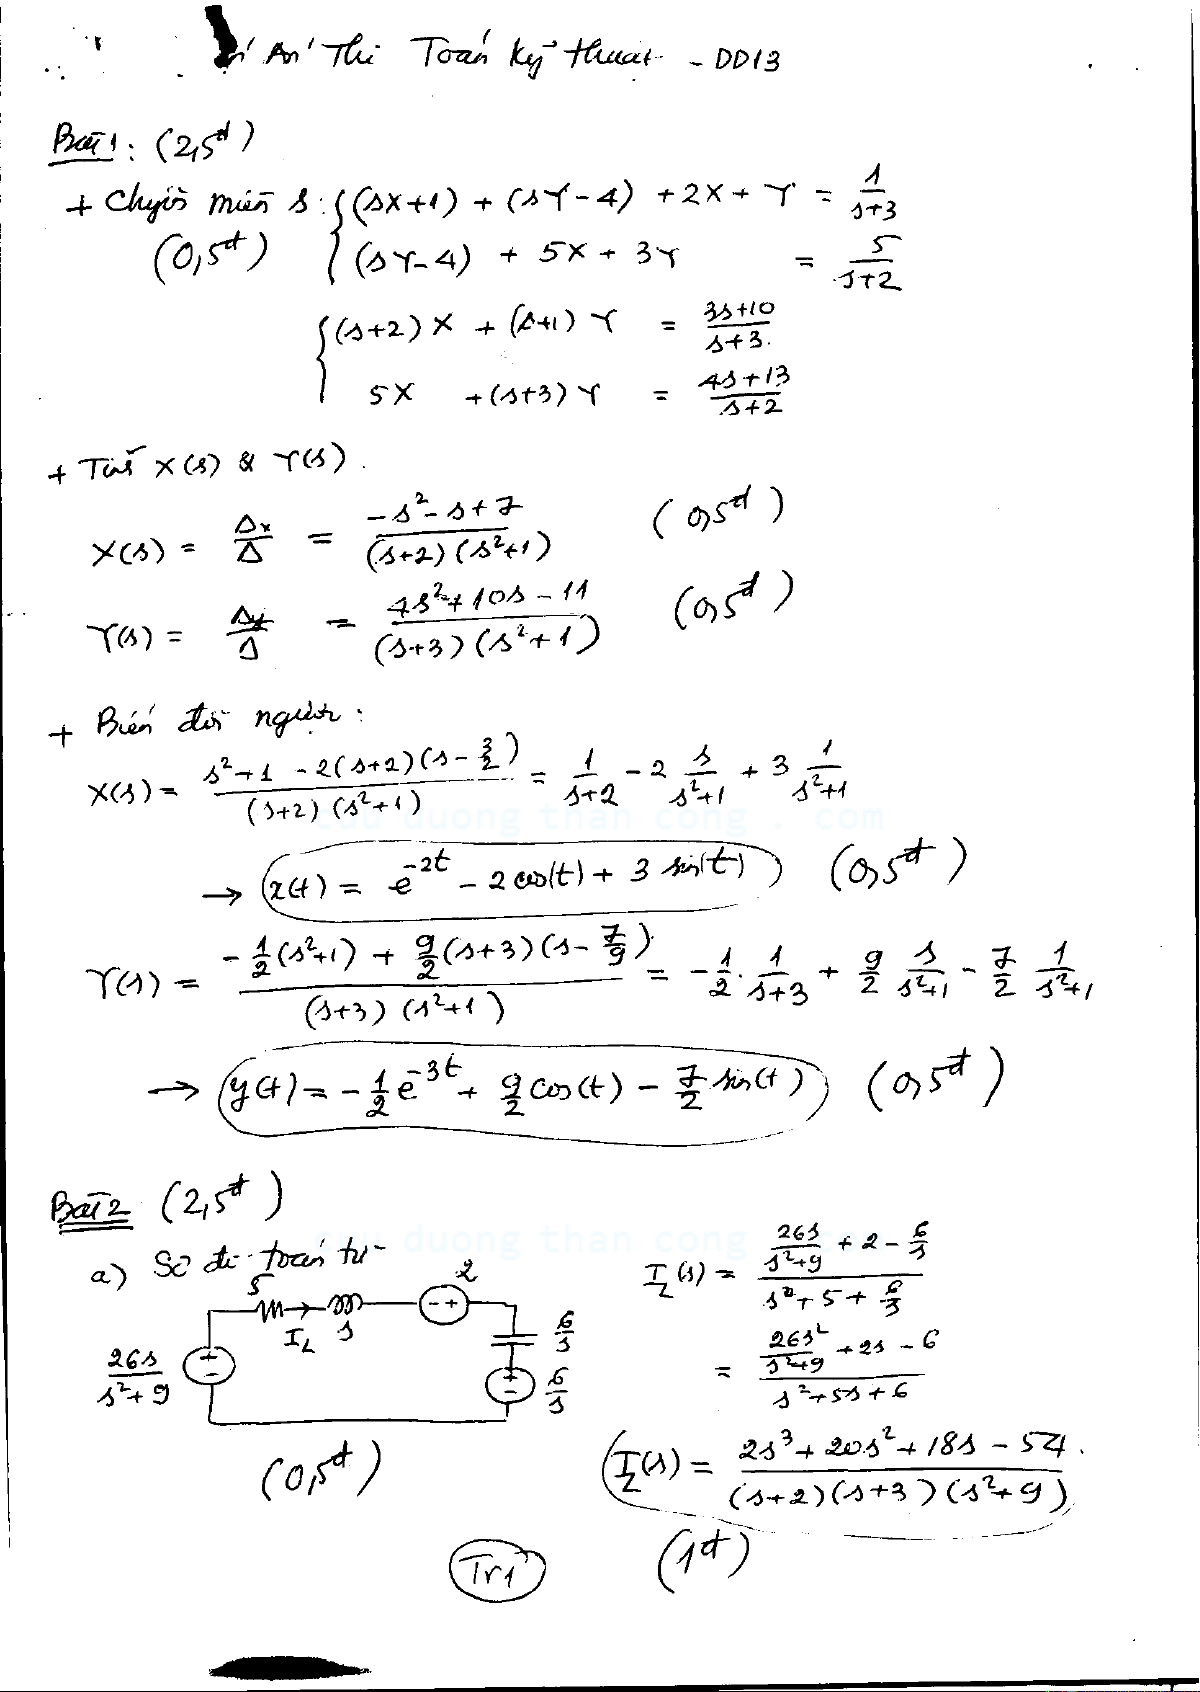 Án Thi Toán Kỹ thuật - DD13
Bài 1: (2,5đ)
+ Chuyển miền s: { (sX+1) + (sY-4) + 2X + Y = 1/(s+3)
(0,5đ) (sY-4) + 5X + 3Y = 5/(s+2)
{ (s+2)X + (s+1)Y = (3s+10)/(s+3)
5X + (s+3)Y = (4s+13)/(s+2)
+ Tìm X(s) & Y(s).
X(s) = Δx/Δ = (-s²-s+7)/((s+2)(s²+1)) (0,5đ)
Y(s) = Δy/Δ = (4s²+10s-11)/((s+3)(s²+1)) (0,5đ)
+ Biến đổi ngược:
X(s) = (s²+1 - 2(s+2)(s-3/2))/((s+2)(s²+1)) = 1/(s+2) - 2 s/(s²+1) + 3 1/(s²+1)
→ x(t) = e^{-2t} - 2cos(t) + 3 sin(t) (0,5đ)
Y(s) = (-1/2(s²+1) + 9/2(s+3)(s-7/9))/((s+3)(s²+1)) = -1/2 . 1/(s+3) + 9/2 s/(s²+1) - 7/2 1/(s²+1)
→ y(t) = -1/2 e^{-3t} + 9/2 cos(t) - 7/2 sin(t) (0,5đ)
Bài 2 (2,5đ)
a) Sơ đồ toán tử
5 I_L s 2 6/s 6/s
26s/(s²+9)
(0,5đ)
I_L(s) = (26s/(s²+9) + 2 - 6/s)/(s + 5 + 6/s)
= (26s²/(s²+9) + 2s - 6)/(s²+5s+6)
I_L(s) = (2s³+20s²+18s-54)/((s+2)(s+3)(s²+9))
(1đ)
Tr1
cuu duong than cong . com
cuu duong than cong . com